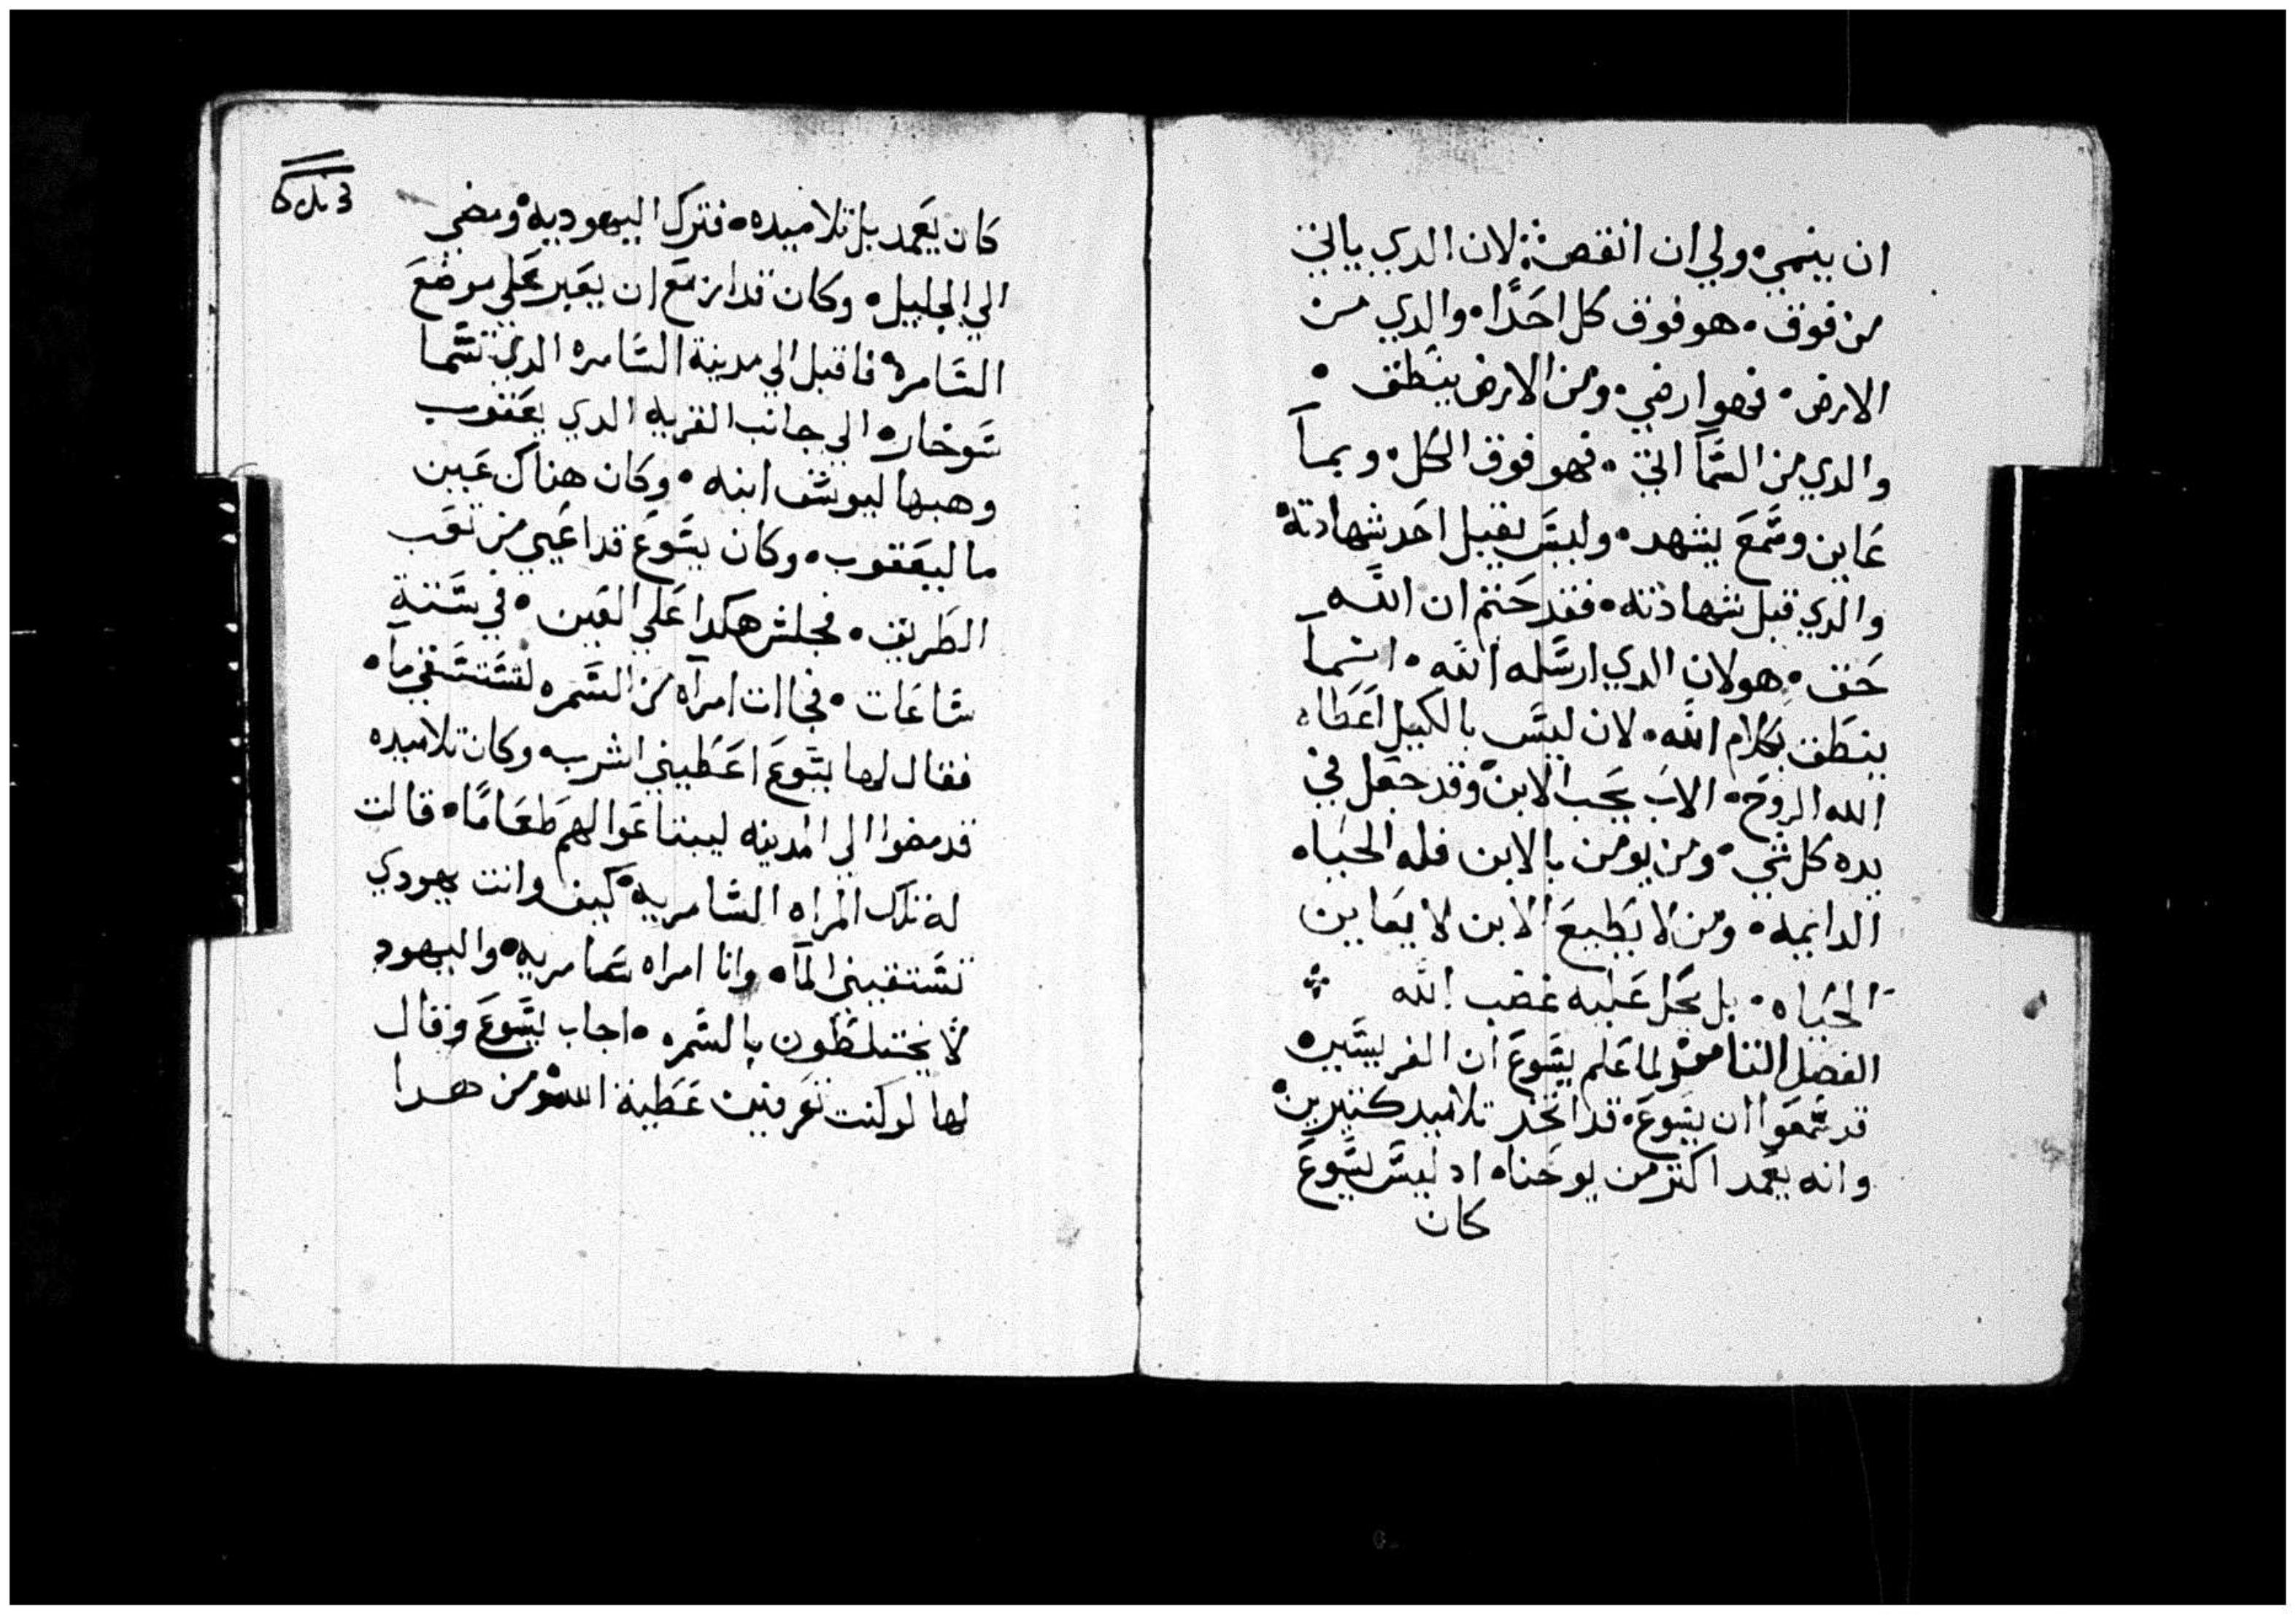 ان ينمي ولي ان انقص لان الدي ياتي
من فوق هو فوق كل احدًا والدي من
الارض فهو ارضي ومن الارض ينطق
والدي من السمآ اتي فهو فوق الكل وبمآ
عاين وسمع يشهد وليس يقبل احد شهادته
والدي قبل شهادته فقد ختم ان الله
حق هو لان الدي ارسله الله انمآ
ينطق بكلام الله لان ليس بالكيل اعطاه
الله الروح الاب يحب الابن وقد جعل في
يده كل شي ومن يومن بالابن فله الحياه
الدايمه ومن لا يطيع الابن لا يعاين
الحياه بل يحل عليه غضب الله
الفصل الثامن لما علم يسوع ان الفريسيين
قد سمعوا ان يسوع قد اتخد تلاميد كتيرين
وانه يعمد اكتر من يوحنا اد ليس يسوع
كان
كان يعمد بل تلاميده فترك اليهوديه ومضي
الي الجليل وكان قد ازمع ان يعبر علي موضع
السامره فاقبل الي مدينة السامره الدي تسما
سوخار الي جانب القريه الدي يعقوب
وهبها ليوسف ابنه وكان هناك عين
ما ليعقوب وكان يسوع قد اعيي من تعب
الطريق فجلس هكدا علي العين في ستة
ساعات فجاات امرآه من السمره لتستقي مآ
فقال لها يسوع اعطيني اشرب وكان تلاميده
قد مضوا الي المدينه ليبتاعوا لهم طعامًا قالت
له تلك المراه السامريه كيف وانت يهودي
تستقيني المآ وانا امراه سامريه واليهود
لا يختلطون بالسمره اجاب يسوع وقال
لها لو كنت تعرفين عطية الله ومن هدا